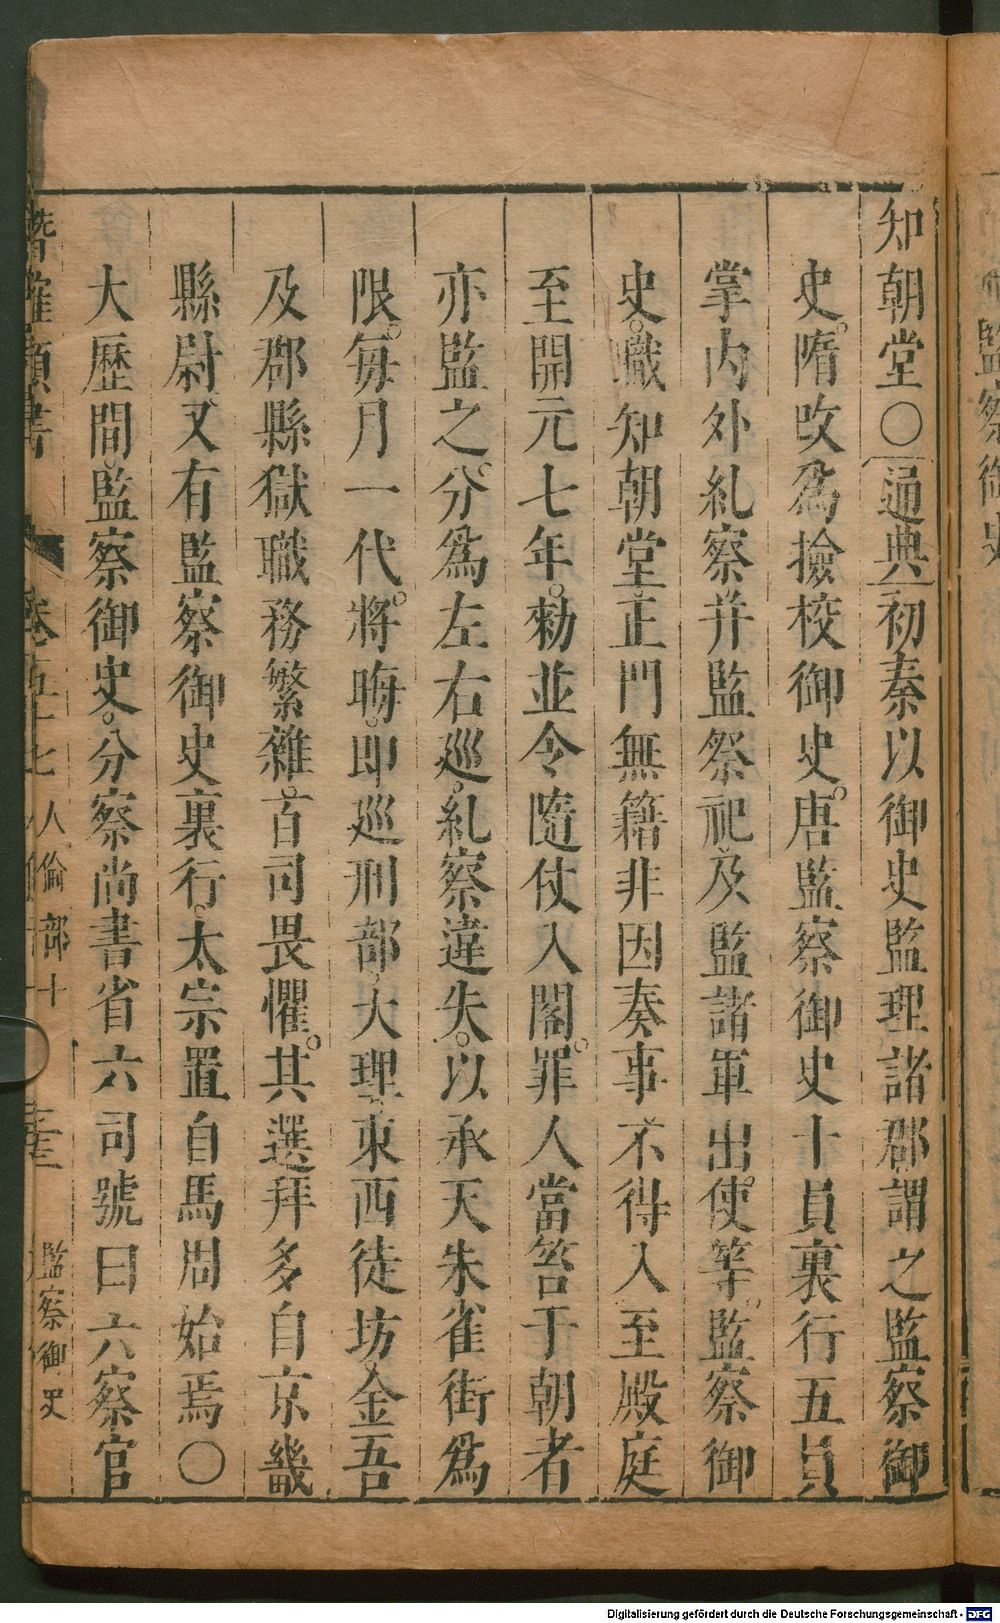 知朝堂○通典初秦以御史監理諸郡謂之監察御
史。隋改爲撿校御史。唐監察御史十員裏行五員
掌內外糺察并監祭祀、及監諸軍出使等、監察御
史。職知朝堂、正門無籍非因奏事、不得入至殿庭
至開元七年。勑並令隨仗入閣。罪人當笞于朝者
亦監之。分爲左右巡、糺察違失。以承天朱雀街爲
限。每月一代。將晦、即巡刑部、大理、東西徒坊、金吾
及郡縣獄職務繁雜。百司畏懼。其選拜多自京畿
縣尉、又有監察御史裏行、太宗置自馬周始焉○
大歷間、監察御史。分察尚書省六司號曰六察官
卷五十七 人倫部十 監察御史
監察御史
Digitalisierung gefördert durch die Deutsche Forschungsgemeinschaft - DFG